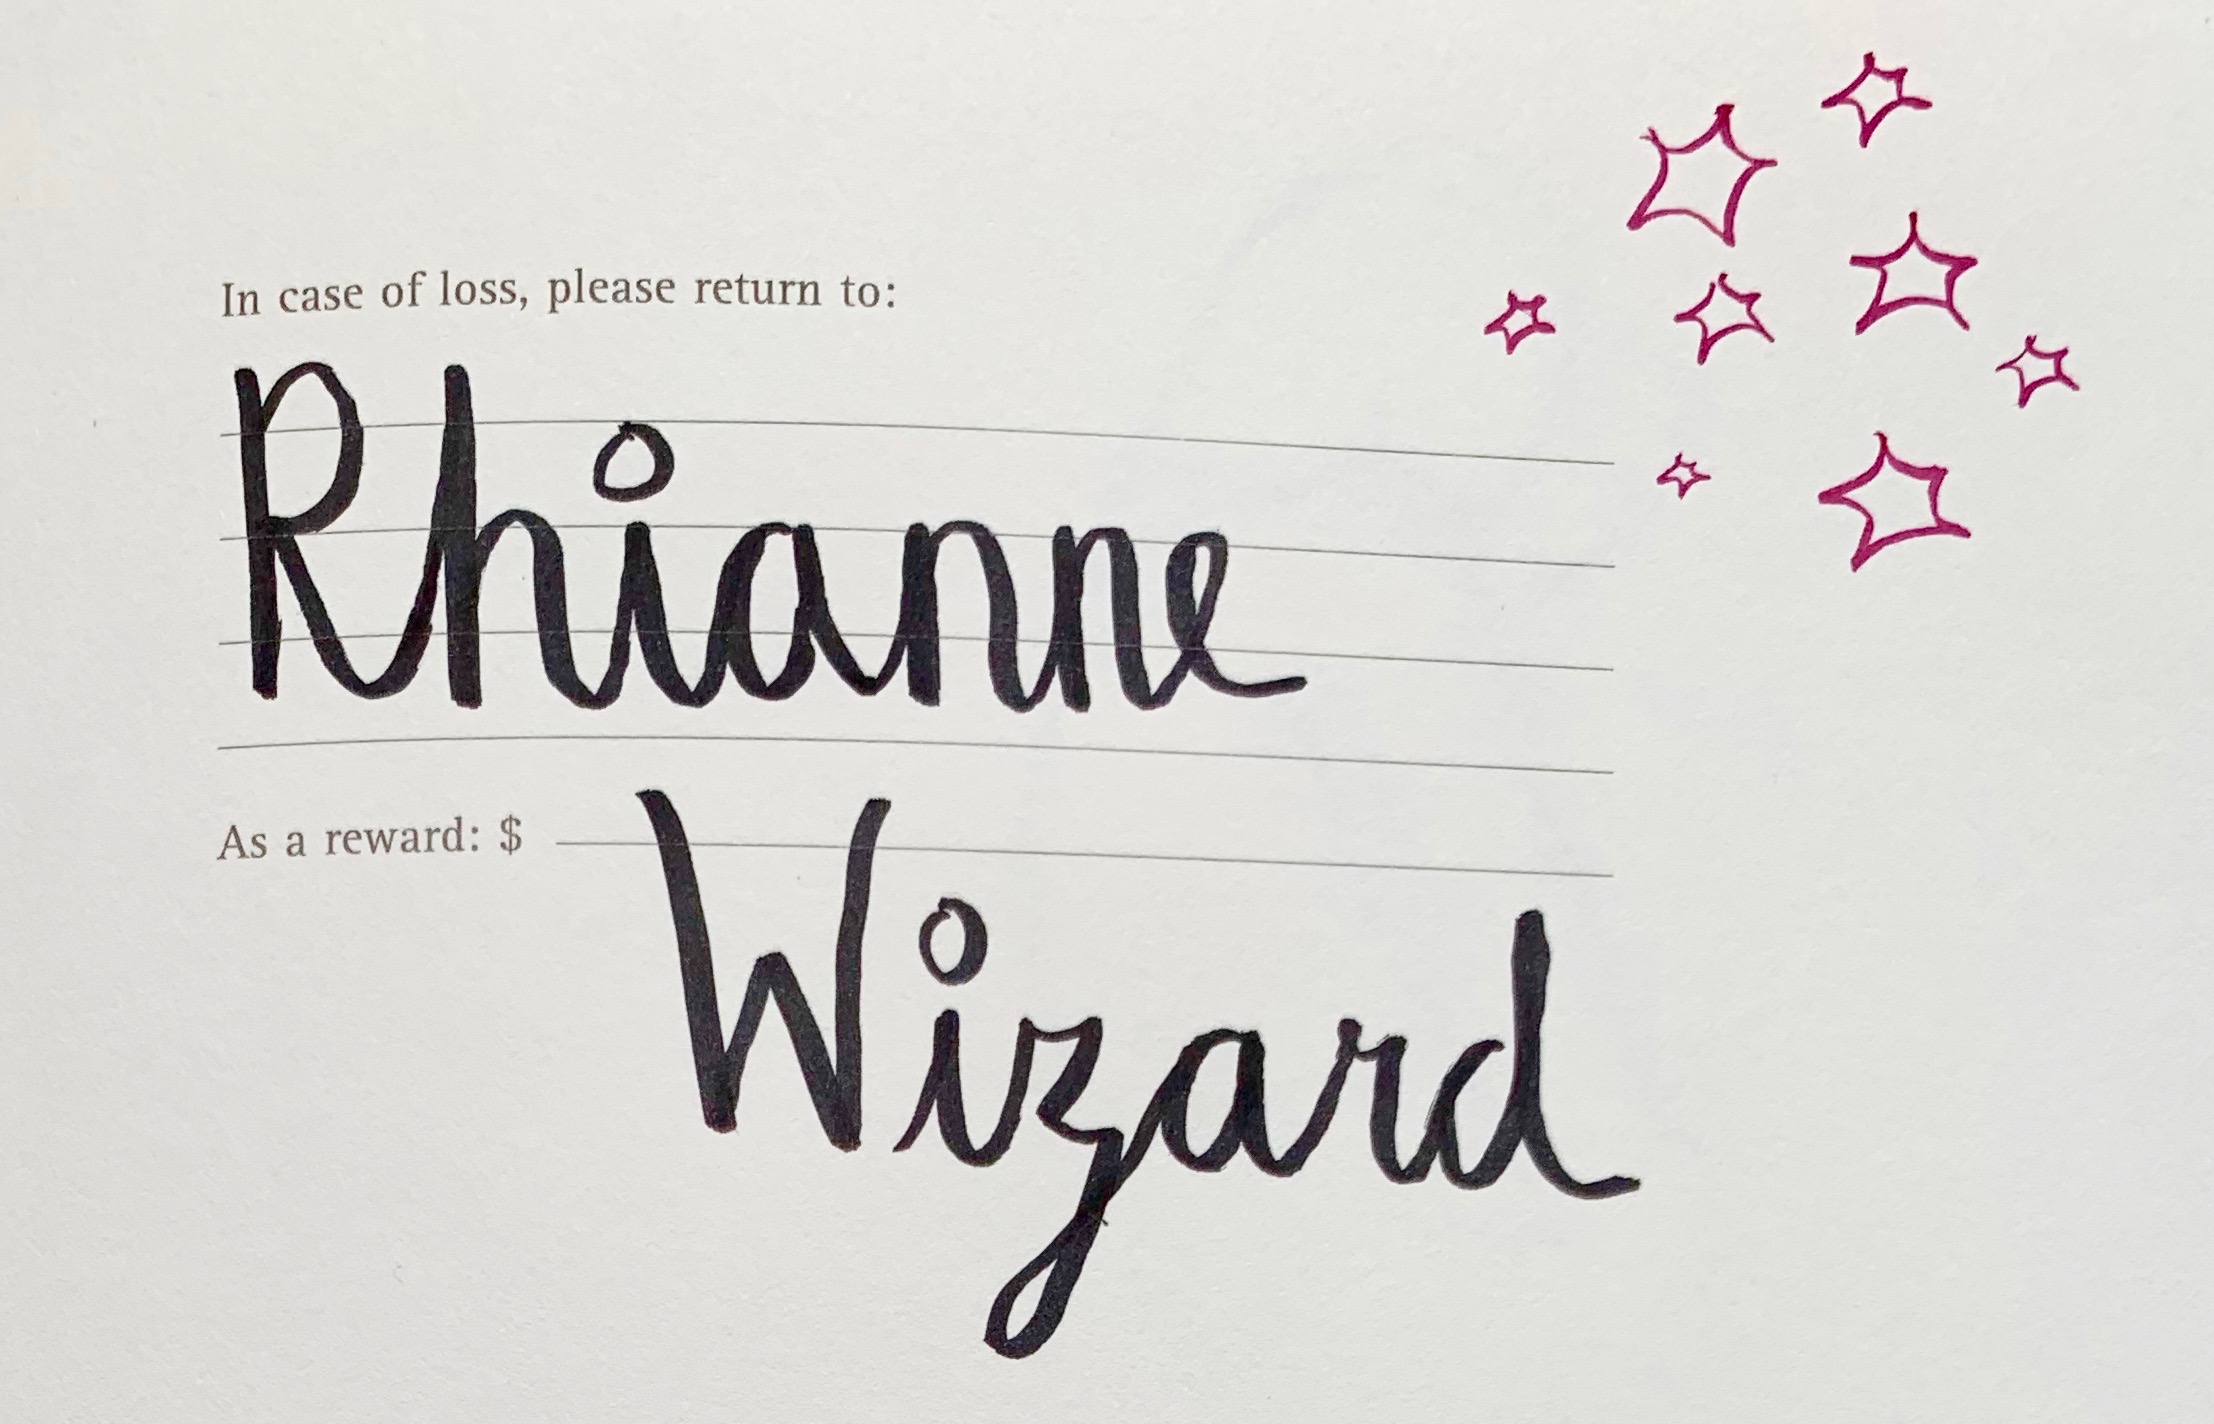 In case of loss, please return to:
Rhianne
As a reward: $
Wizard